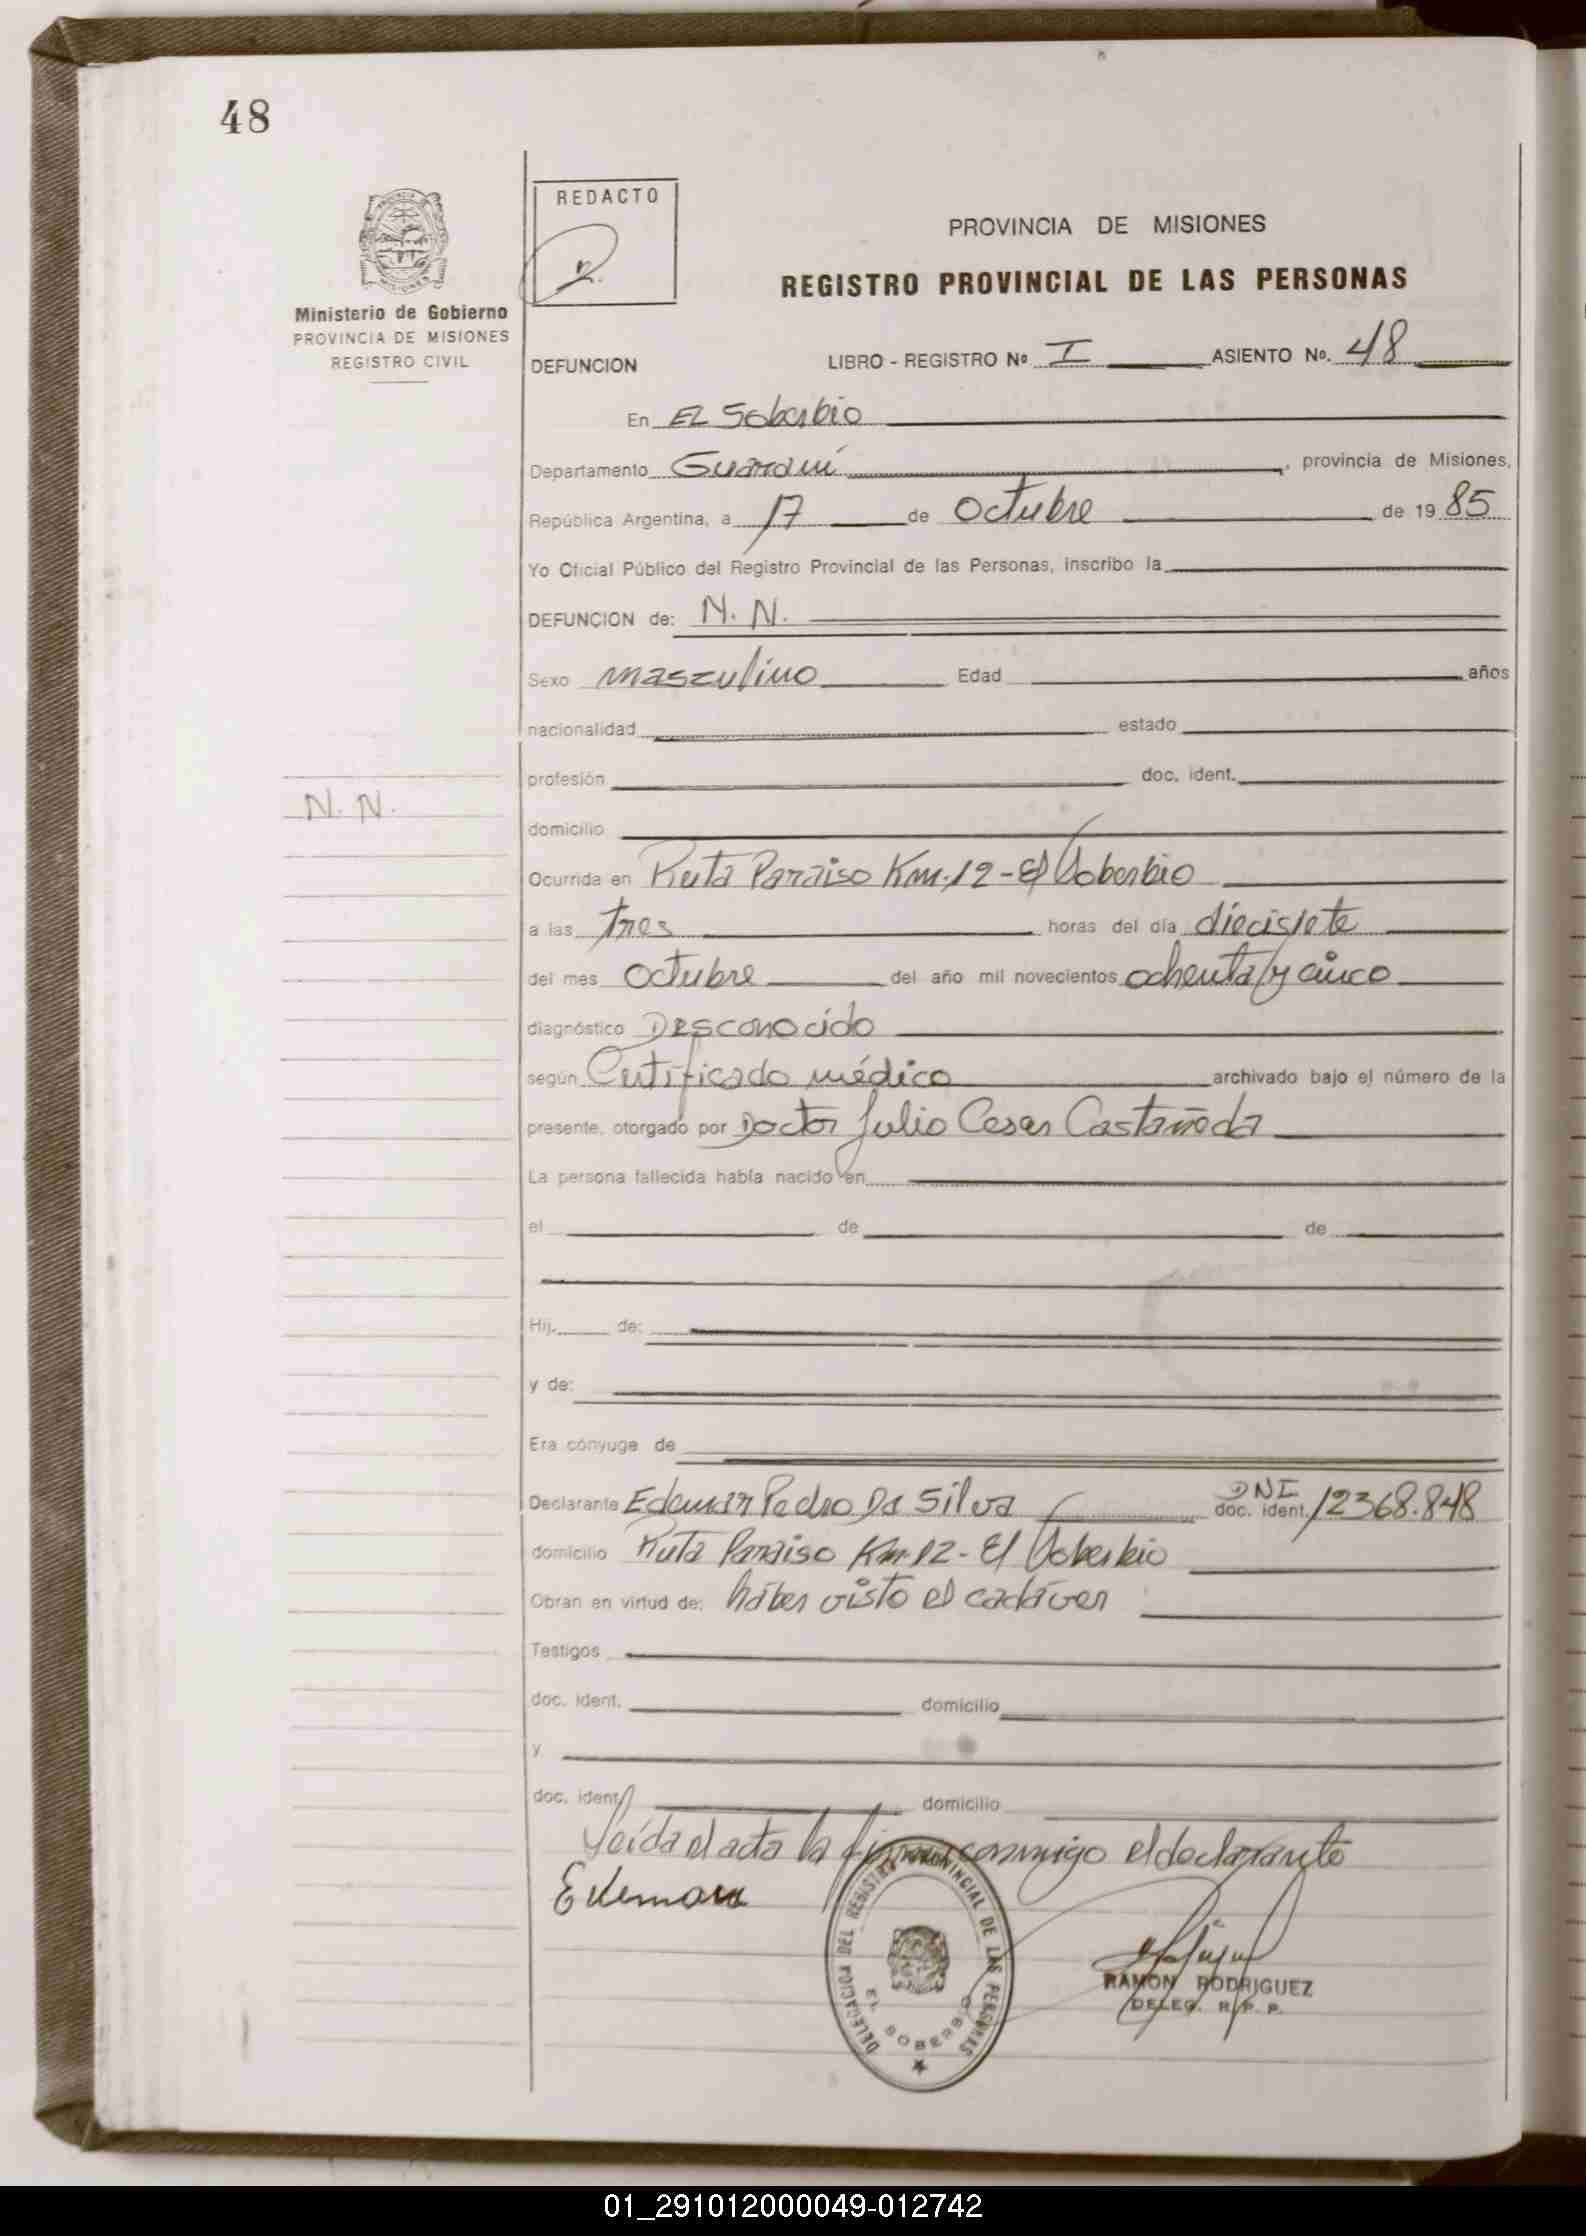 48
REDACTO
PROVINCIA DE MISIONES
REGISTRO PROVINCIAL DE LAS PERSONAS
Ministerio de Gobierno
PROVINCIA DE MISIONES
REGISTRO CIVIL
DEFUNCION LIBRO - REGISTRO Nº I ASIENTO No. 48
En EL Soberbio
Departamento Guaraní, provincia de Misiones,
República Argentina, a 17 de Octubre de 1985
Yo Oficial Público del Registro Provincial de las Personas, inscribo la
DEFUNCION de: N. N.
Sexo masculino Edad años
nacionalidad estado
profesión doc. ident.
N. N.
domicilio
Ocurrida en Ruta Paraiso Km. 12 - El Soberbio
a las tres horas del día diecisiete
del mes Octubre del año mil novecientos ochenta y cinco
diagnóstico Desconocido
según Certificado médico archivado bajo el número de la
presente, otorgado por Doctor Julio Cesar Castañeda
La persona fallecida había nacido en
el de de
Hij. de:
y de:
Era cónyuge de
Declarante Edemar Pedro Da Silva DNI doc. ident. 12368.848
domicilio Ruta Paraiso Km. 12 - El Soberbio
Obran en virtud de: haber visto el cadáver
Testigos
doc. ident. domicilio
y
doc. ident. domicilio
Leída el acta la firma conmigo el declarante
Edemar
DELEGACION DEL REGISTRO PROVINCIAL DE LAS PERSONAS
EL SOBERBIO
RAMON RODRIGUEZ
DELEG. R. P. P.
01_291012000049-012742